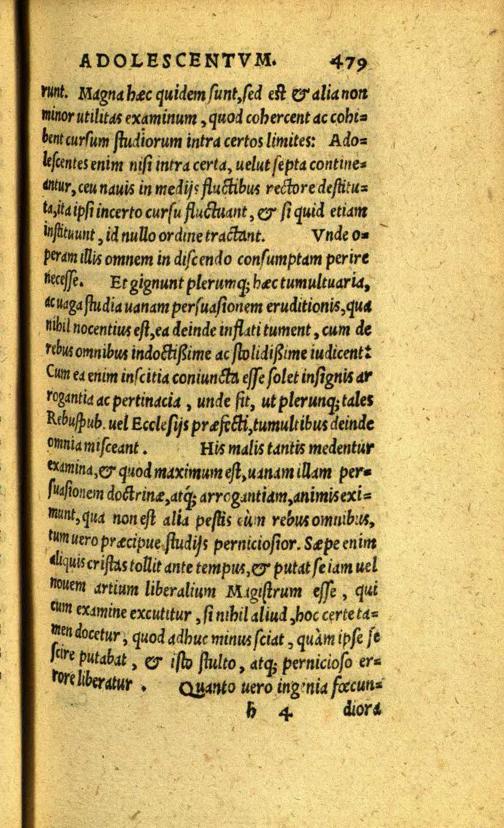 ADOLESCENTVM. 479
runt. Magna hæc quidem sunt, sed est & alia non
minor utilitas examinum, quod cohercent ac cohi=
bent cursum studiorum intra certos limites: Ado=
lescentes enim nisi intra certa, uelut septa contine=
antur, ceu nauis in medijs fluctibus rectore destitu=
ta, ita ipsi incerto cursu fluctuant, & si quid etiam
instituunt, id nullo ordine tractant. Vnde o=
peram illis omnem in discendo consumptam perire
necesse. Et gignunt plerumq; hæc tumultuaria,
ac uaga studia uanam persuasionem eruditionis, qua
nihil nocentius est, ea deinde inflati tument, cum de
rebus omnibus indoctißime ac stolidißime iudicent:
Cum ea enim inscitia coniuncta esse solet insignis ar
rogantia ac pertinacia, unde fit, ut plerunq; tales
Rebuspub. uel Ecclesijs præfecti, tumultibus deinde
omnia misceant. His malis tantis medentur
examina, & quod maximum est, uanam illam per=
suasionem doctrinæ, atq; arrogantiam, animis exi=
munt, qua non est alia pestis cùm rebus omnibus,
tum uero præcipue studijs perniciosior. Sæpe enim
aliquis cristas tollit ante tempus, & putat se iam uel
nouem artium liberalium Magistrum esse, qui
cum examine excutitur, si nihil aliud, hoc certe ta=
men docetur, quod adhuc minus sciat, quàm ipse se
scire putabat, & isto stulto, atq; pernicioso er=
rore liberatur. Quanto uero ingenia fœcun=
h 4 diora